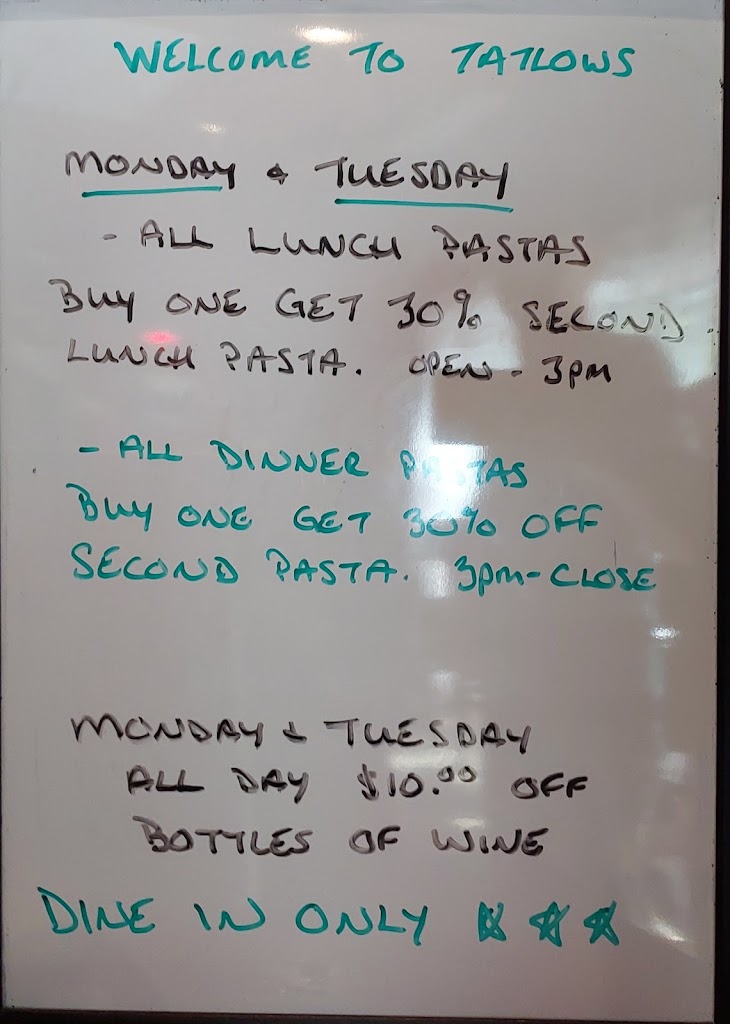 WELCOME TO TATLOWS
MONDAY & TUESDAY
- ALL LUNCH PASTAS
BUY ONE GET 30% SECOND
LUNCH PASTA. OPEN - 3PM
- ALL DINNER PASTAS
BUY ONE GET 30% OFF
SECOND PASTA. 3PM-CLOSE
MONDAY & TUESDAY
ALL DAY $10.00 OFF
BOTTLES OF WINE
DINE IN ONLY ☆ ☆ ☆